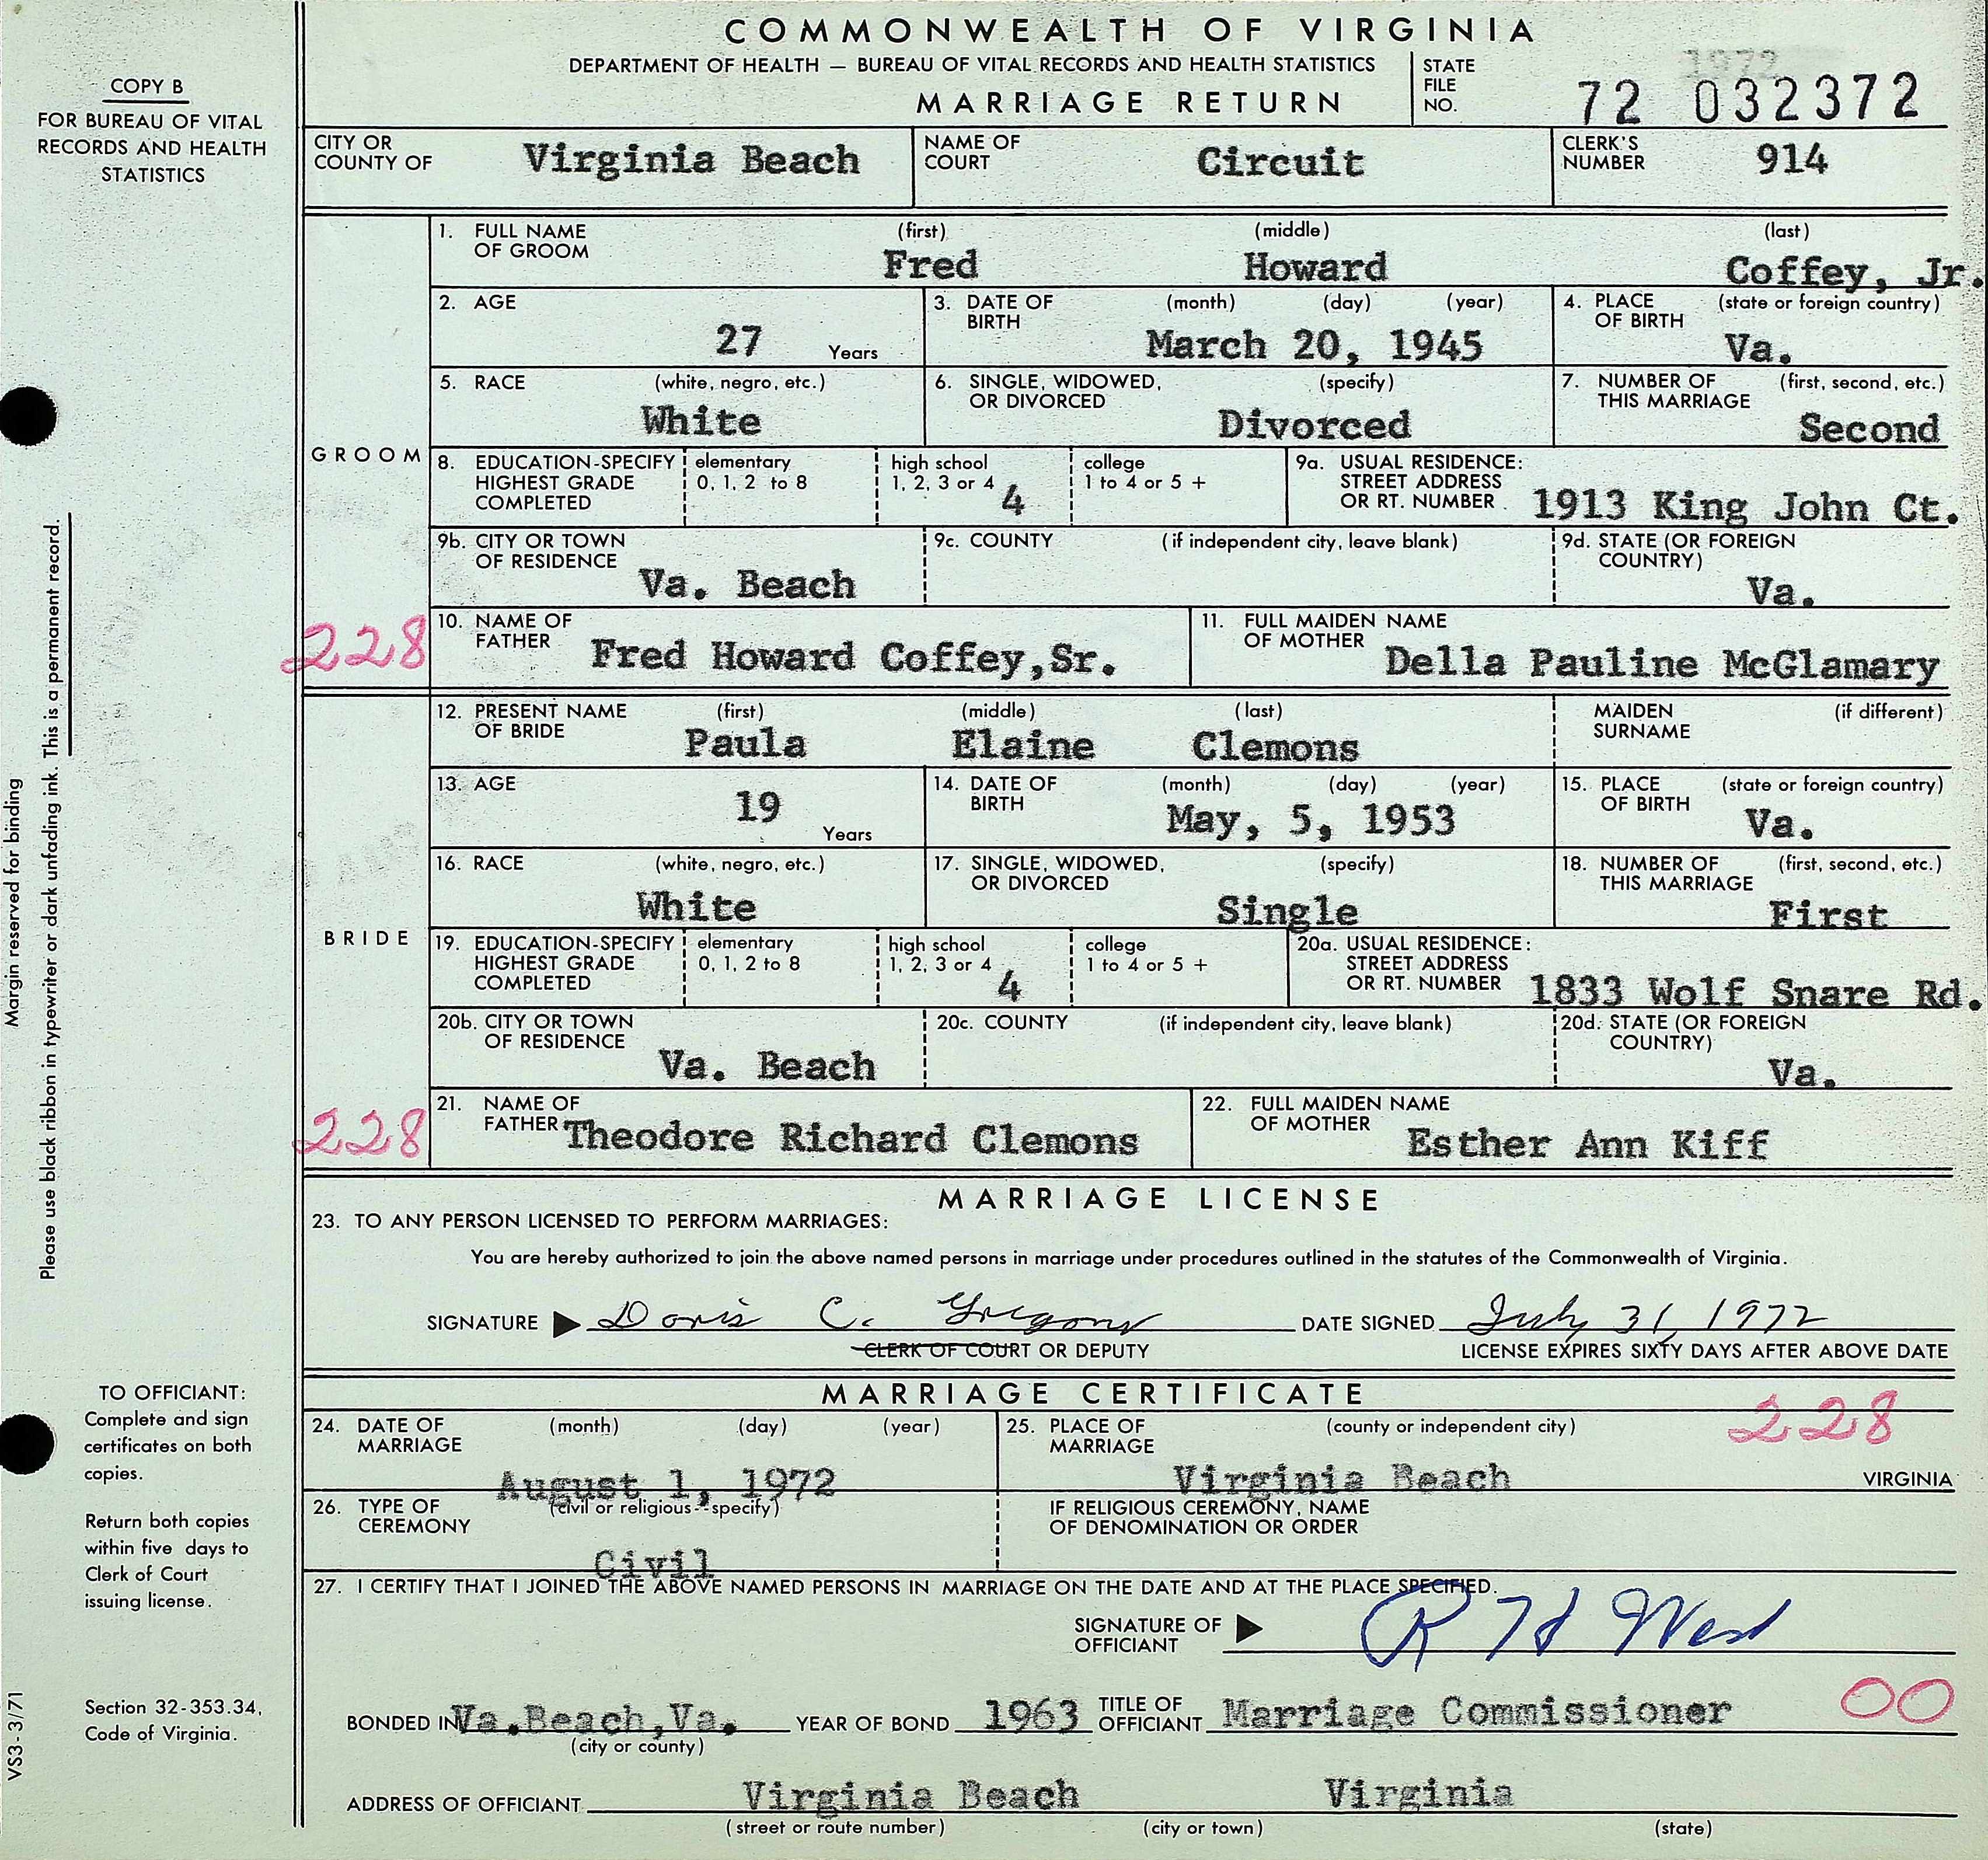 COMMONWEALTH OF VIRGINIA
DEPARTMENT OF HEALTH — BUREAU OF VITAL RECORDS AND HEALTH STATISTICS
MARRIAGE RETURN
STATE FILE NO.
1972
72 032372
COPY B
FOR BUREAU OF VITAL
RECORDS AND HEALTH
STATISTICS
CITY OR COUNTY OF Virginia Beach
NAME OF COURT Circuit
CLERK'S NUMBER 914
GROOM
1. FULL NAME OF GROOM (first) (middle) (last)
Fred Howard Coffey, Jr.
2. AGE 27 Years
3. DATE OF BIRTH (month) (day) (year)
March 20, 1945
4. PLACE OF BIRTH (state or foreign country)
Va.
5. RACE (white, negro, etc.)
White
6. SINGLE, WIDOWED, OR DIVORCED (specify)
Divorced
7. NUMBER OF THIS MARRIAGE (first, second, etc.)
Second
8. EDUCATION-SPECIFY HIGHEST GRADE COMPLETED
elementary 0, 1, 2 to 8
high school 1, 2, 3 or 4 4
college 1 to 4 or 5 +
9a. USUAL RESIDENCE: STREET ADDRESS OR RT. NUMBER 1913 King John Ct.
9b. CITY OR TOWN OF RESIDENCE Va. Beach
9c. COUNTY (if independent city, leave blank)
9d. STATE (OR FOREIGN COUNTRY)
Va.
228
10. NAME OF FATHER Fred Howard Coffey,Sr.
11. FULL MAIDEN NAME OF MOTHER Della Pauline McGlamary
BRIDE
12. PRESENT NAME OF BRIDE (first) (middle) (last)
Paula Elaine Clemons
MAIDEN SURNAME (if different)
13. AGE 19 Years
14. DATE OF BIRTH (month) (day) (year)
May, 5, 1953
15. PLACE OF BIRTH (state or foreign country)
Va.
16. RACE (white, negro, etc.)
White
17. SINGLE, WIDOWED, OR DIVORCED (specify)
Single
18. NUMBER OF THIS MARRIAGE (first, second, etc.)
First
19. EDUCATION-SPECIFY HIGHEST GRADE COMPLETED
elementary 0, 1, 2 to 8
high school 1, 2, 3 or 4 4
college 1 to 4 or 5 +
20a. USUAL RESIDENCE: STREET ADDRESS OR RT. NUMBER 1833 Wolf Snare Rd.
20b. CITY OR TOWN OF RESIDENCE Va. Beach
20c. COUNTY (if independent city, leave blank)
20d. STATE (OR FOREIGN COUNTRY)
Va.
228
21. NAME OF FATHER Theodore Richard Clemons
22. FULL MAIDEN NAME OF MOTHER Esther Ann Kiff
MARRIAGE LICENSE
23. TO ANY PERSON LICENSED TO PERFORM MARRIAGES:
You are hereby authorized to join the above named persons in marriage under procedures outlined in the statutes of the Commonwealth of Virginia.
SIGNATURE Doris C. Gregory DATE SIGNED July 31, 1972
CLERK OF COURT OR DEPUTY LICENSE EXPIRES SIXTY DAYS AFTER ABOVE DATE
MARRIAGE CERTIFICATE
24. DATE OF MARRIAGE (month) (day) (year)
August 1, 1972
25. PLACE OF MARRIAGE (county or independent city) 228
Virginia Beach VIRGINIA
26. TYPE OF CEREMONY (civil or religious--specify)
Civil
IF RELIGIOUS CEREMONY, NAME OF DENOMINATION OR ORDER
27. I CERTIFY THAT I JOINED THE ABOVE NAMED PERSONS IN MARRIAGE ON THE DATE AND AT THE PLACE SPECIFIED.
SIGNATURE OF OFFICIANT R H West
00
BONDED IN Va.Beach,Va. YEAR OF BOND 1963 TITLE OF OFFICIANT Marriage Commissioner
(city or county)
ADDRESS OF OFFICIANT Virginia Beach Virginia
(street or route number) (city or town) (state)
Margin reserved for binding
Please use black ribbon in typewriter or dark unfading ink. This is a permanent record.
TO OFFICIANT:
Complete and sign
certificates on both
copies.
Return both copies
within five days to
Clerk of Court
issuing license.
Section 32-353.34,
Code of Virginia.
VS3-3/71